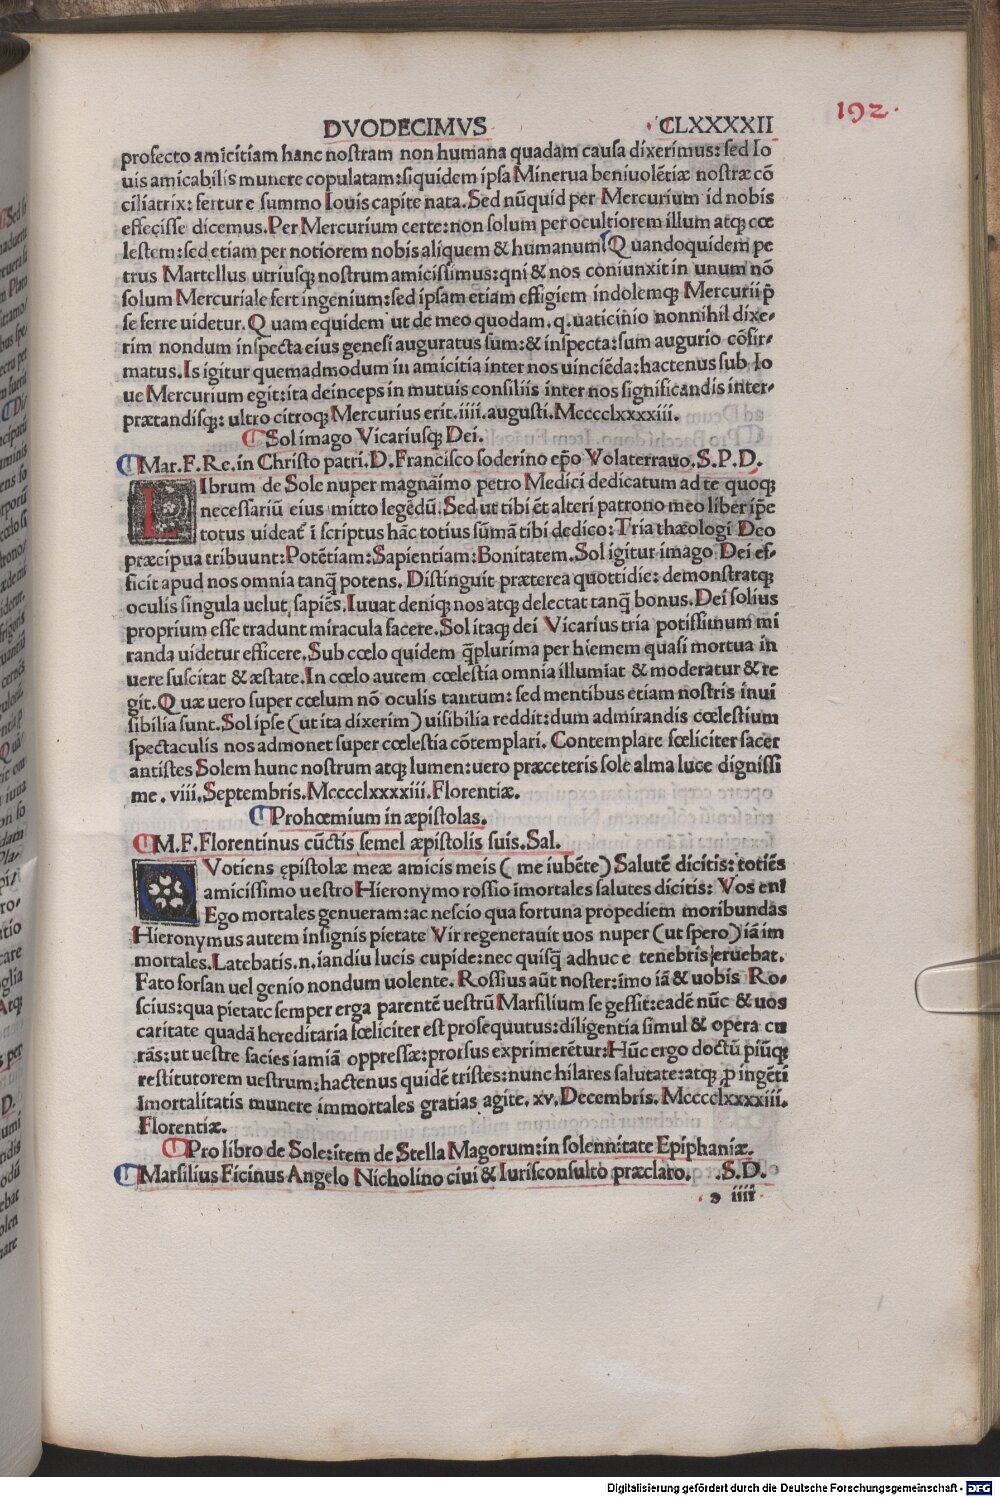 192.
DVODECIMVS CLXXXXII
profecto amicitiam hanc nostram non humana quadam causa dixerimus: sed Io
uis amicabilis munere copulatam: siquidem ipsa Minerua beniuolētiæ nostræ cō
ciliatrix: fertur e summo Iouis capite nata. Sed nūquid per Mercurium id nobis
effecisse dicemus. Per Mercurium certe: non solum per ocultiorem illum atqꝫ cœ
lestem: sed etiam per notiorem nobis aliquem & humanum. Quandoquidem pe
trus Martellus utriusqꝫ nostrum amicissimus: qni & nos coniunxit in unum nō
solum Mercuriale fert ingenium: sed ipsam etiam effigiem indolemqꝫ Mercurii p̄
se ferre uidetur. Quam equidem ut de meo quodam. q. uaticinio nonnihil dixe-
rim nondum inspecta eius genesi auguratus sum: & inspecta: sum augurio cōfir-
matus. Is igitur quemadmodum in amicitia inter nos uinciēda: hactenus sub Io
ue Mercurium egit: ita deinceps in mutuis consiliis inter nos significandis inter-
prætandisqꝫ: ultro citroqꝫ Mercurius erit. iiii. augusti. Mcccclxxxxiii.
Sol imago Vicariusqꝫ Dei.
Mar. F. Re. in Christo patri. D. Francisco soderino ep̄o Volaterrauo. S. P. D.
LIbrum de Sole nuper magnaīmo petro Medici dedicatum ad te quoqꝫ
necessariū eius mitto legēdū. Sed ut tibi ēt alteri patrono meo liber ip̄e
totus uideat̄ ī scriptus hāc totius sūmā tibi dedico: Tria thæologi Deo
præcipua tribuunt: Potētiam: Sapientiam: Bonitatem. Sol igitur imago Dei ef-
ficit apud nos omnia tanq̄ potens. Distinguit præterea quottidie: demonstratqꝫ
oculis singula uelut sapiēs. Iuuat deniqꝫ nos atqꝫ delectat tanq̄ bonus. Dei solius
proprium esse tradunt miracula facere. Sol itaqꝫ dei Vicarius tria potissimum mi
randa uidetur efficere. Sub cœlo quidem q̄plurima per hiemem quasi mortua in
uere suscitat & æstate. In cœlo autem cœlestia omnia illumiat & moderatur & re
git. Quæ uero super cœlum nō oculis tantum: sed mentibus etiam nostris inui
sibilia sunt. Sol ipse (ut ita dixerim) uisibilia reddit: dum admirandis cœlestium
spectaculis nos admonet super cœlestia cōtemplari. Contemplare fœliciter sacer
antistes Solem hunc nostrum atqꝫ lumen: uero præceteris sole alma luce dignissi
me. viii. Septembris. Mcccclxxxxiii. Florentiæ.
Prohœmium in æpistolas.
M. F. Florentinus cūctis semel æpistolis suis. Sal.
QVotiens epistolæ meæ amicis meis ( me iubēte) Salutē dicitis: totiēs
amicissimo uestro Hieronymo rossio īmortales salutes dicitis: Vos enī
Ego mortales genueram: ac nescio qua fortuna propediem moribundas
Hieronymus autem insignis pietate Vir regenerauit uos nuper (ut spero) iā im
mortales. Latebatis. n. iandiu lucis cupide: nec quisq̄ adhuc e tenebris eruebat.
Fato forsan uel genio nondum uolente. Rossius aūt noster: imo iā & uobis Ro-
scius: qua pietate semper erga parentē uestrū Marsilium se gessit: eadē nūc & uos
caritate quadā hereditaria fœliciter est prosequutus: diligentia simul & opera cu
rās: ut uestre facies iamiā oppressæ: prorsus exprimerētur: Hūc ergo doctū piūqꝫ
restitutorem uestrum: hactenus quidē tristes: nunc hilares salutate: atqꝫ ꝓ ingēti
īmortalitatis munere immortales gratias agite. xv. Decembris. Mcccclxxxxiii.
Florentiæ.
Pro libro de Sole: item de Stella Magorum: in solennitate Epiphaniæ.
Marsilius Ficinus Angelo Nicholino ciui & Iurisconsulto præclaro. .S. D.
iiii
Digitalisierung gefördert durch die Deutsche Forschungsgemeinschaft - DFG